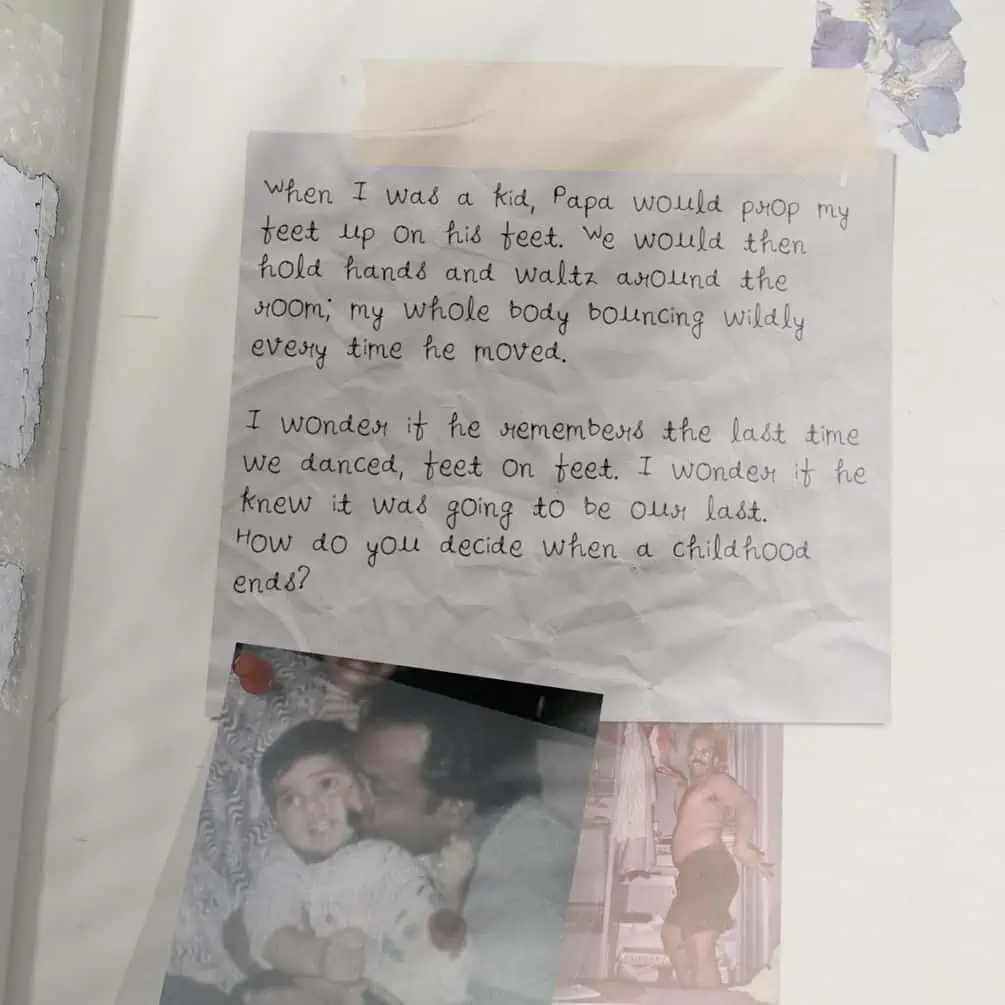 When I was a kid, Papa would prop my
feet up on his feet. We would then
hold hands and waltz around the
room; my whole body bouncing wildly
every time he moved.
I wonder if he remembers the last time
we danced, feet on feet. I wonder if he
knew it was going to be our last.
How do you decide when a childhood
ends?